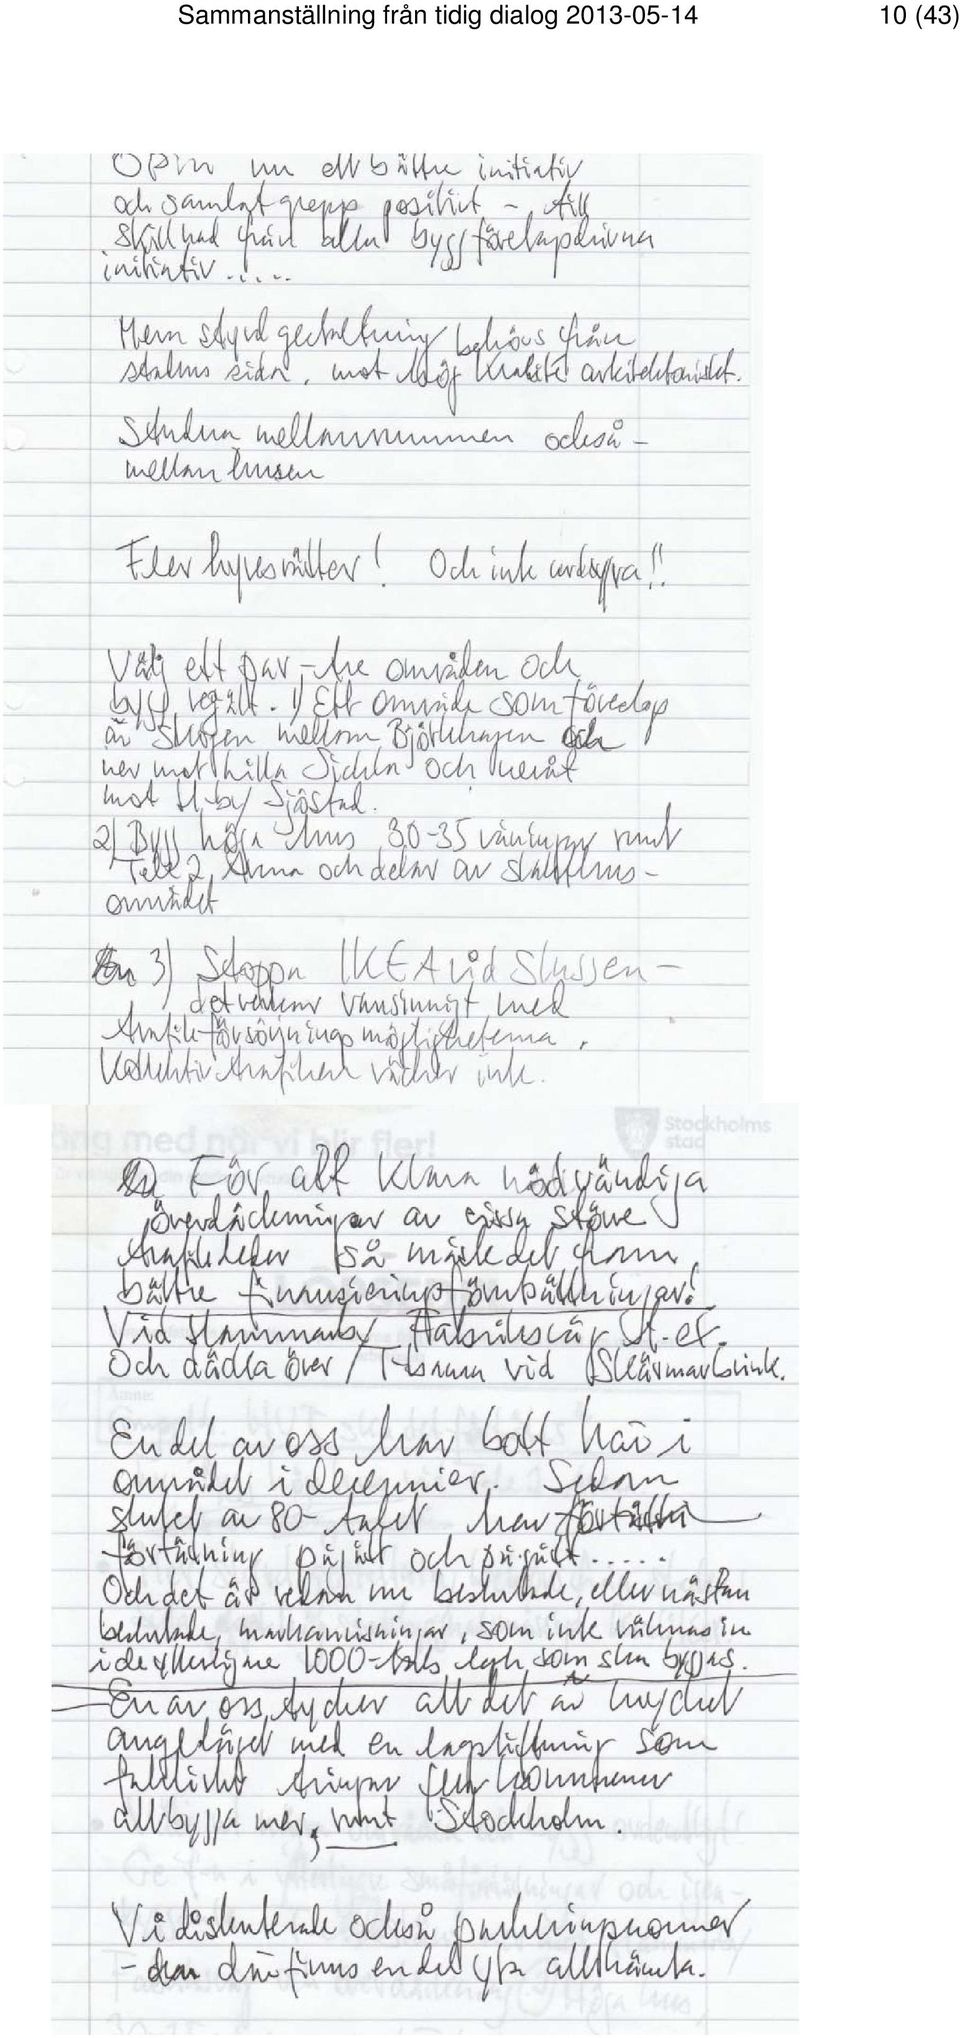 Sammanställning från tidig dialog 2013-05-14 10 (43)
nu ett bättre initiativ
och samlat grepp positivt -, till
skillnad från alla byggföretagsdrivna
initiativ .....
Mera styrd gestaltning behövs från
stadens sidan, mot högt arkitektoniskt.
Studera mellanrummen också -
mellan husen
Fler hyresrätter! Och inte urdyra!!
Välj ett par-tre områden och
bygg rejält. 1) Ett område som föreslag
är skogen mellan Björkhagen och
ner mot hilla Sickla och neråt
mot H-by Sjöstad.
2) Bygg höga hus 30-35 våningar runt
Tele 2, Arena och delar av slakthus-
området
3) Stoppa IKEA vid Slussen -
det verkar vansinnigt med
trafikförsörjningsmöjligheterna,
Kollektivtrafiken räcker inte.
Stockholms
stad
För att klara nödvändiga
överdäckningar av vissa större
trafikleder så måste det fram
bättre finansieringsförutsättningar!
Vid Hammarby Fabriksväg t.ex.
Och däcka över T-bana vid Skärmarbrink.
En del av oss har bott här i
området i decennier. Sedan
slutet av 80-talet har
förtätning pågått och pågått.....
Och det är redan nu beslutade, eller nästan
beslutade, markanvisningar, som inte räknas in
i de ytterligare 1000-tals lgh som ska byggas.
En av oss tycker att det är mycket
angeläget med en lagstiftning som
faktiskt tvingar fler kommuner
att bygga mer, runt Stockholm.
Vi diskuterade också parkeringsnormer
- där finns en del yta att hämta.